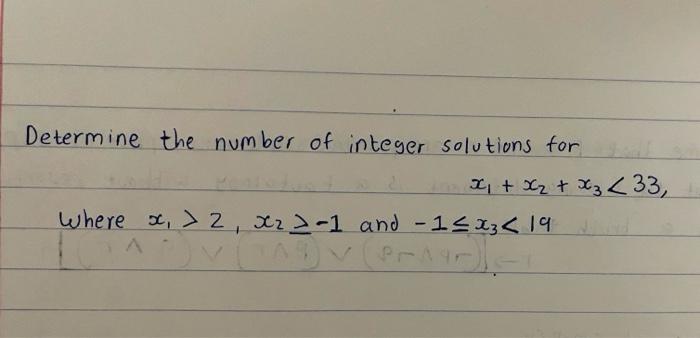 Determine the number of integer solutions for
x₁ + x₂ + x₃ < 33,
where x₁ > 2, x₂ ≥ -1 and -1 ≤ x₃ < 19